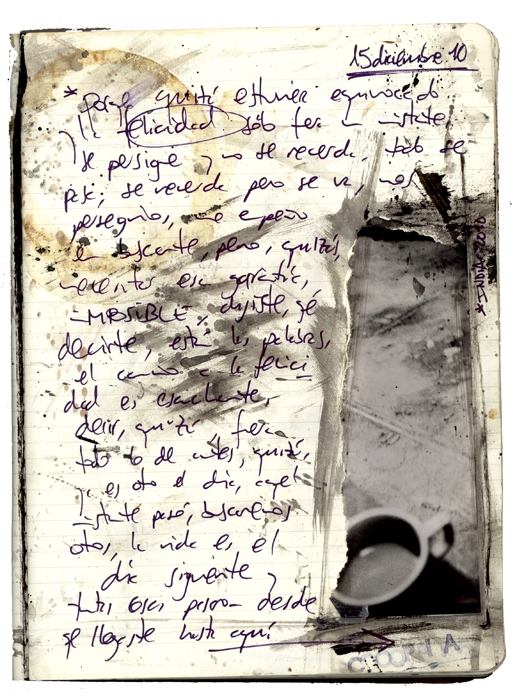 15 diciembre 10
* Porque quizá estuviera equivocado
y la felicidad sólo fera un instante
se persige y no se recuerda, todo se
pasa, se recuerda pero se va, nos
perseguimos, me empeño
en buscarte, pero, quizás,
necesites esa garantía,
IMPOSIBLE, dijiste, qé
decirte, están las palabras,
el camino a la felici
dad es
decir, quizá fera
todo lo de antes, quizá,
es otro el día, aquel
instante pasó, buscaremos
otros, la vida es el
día siguiente y
tantas cosas pasaron desde
qe llegaste hasta aquí
* INDIA 2010
COPIA